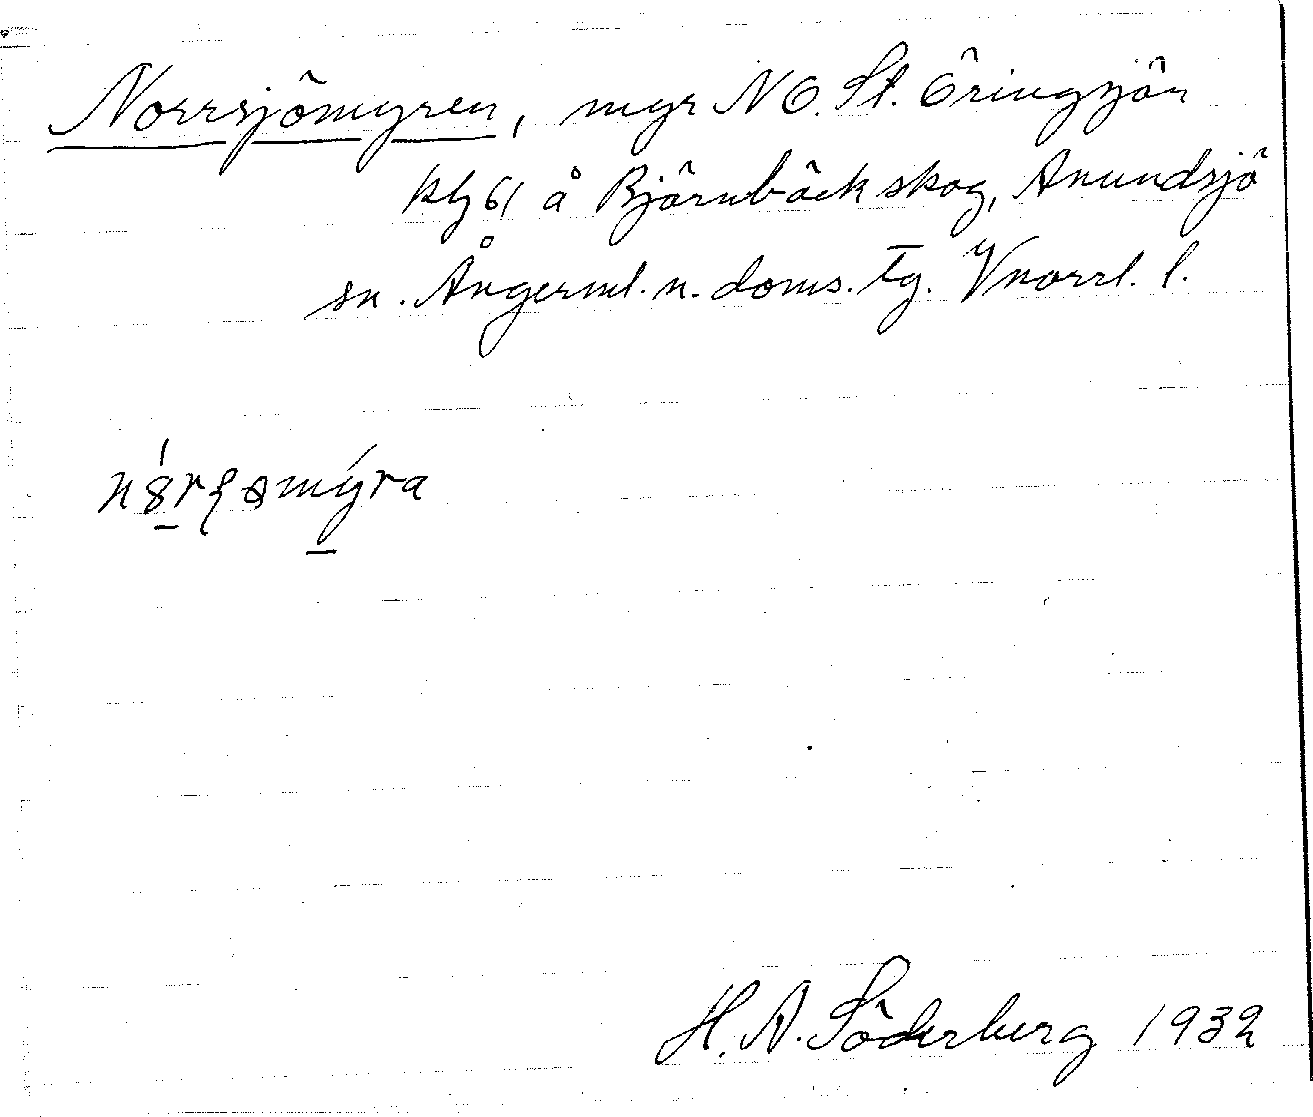 Norrsjömyren, myr NO. St. Öringsjön
kbl 61 å Björnbäck skog, Anundsjö
sn. Ångerml. n. doms. tg. Vnorrl. l.
H. A. Söderberg 1932